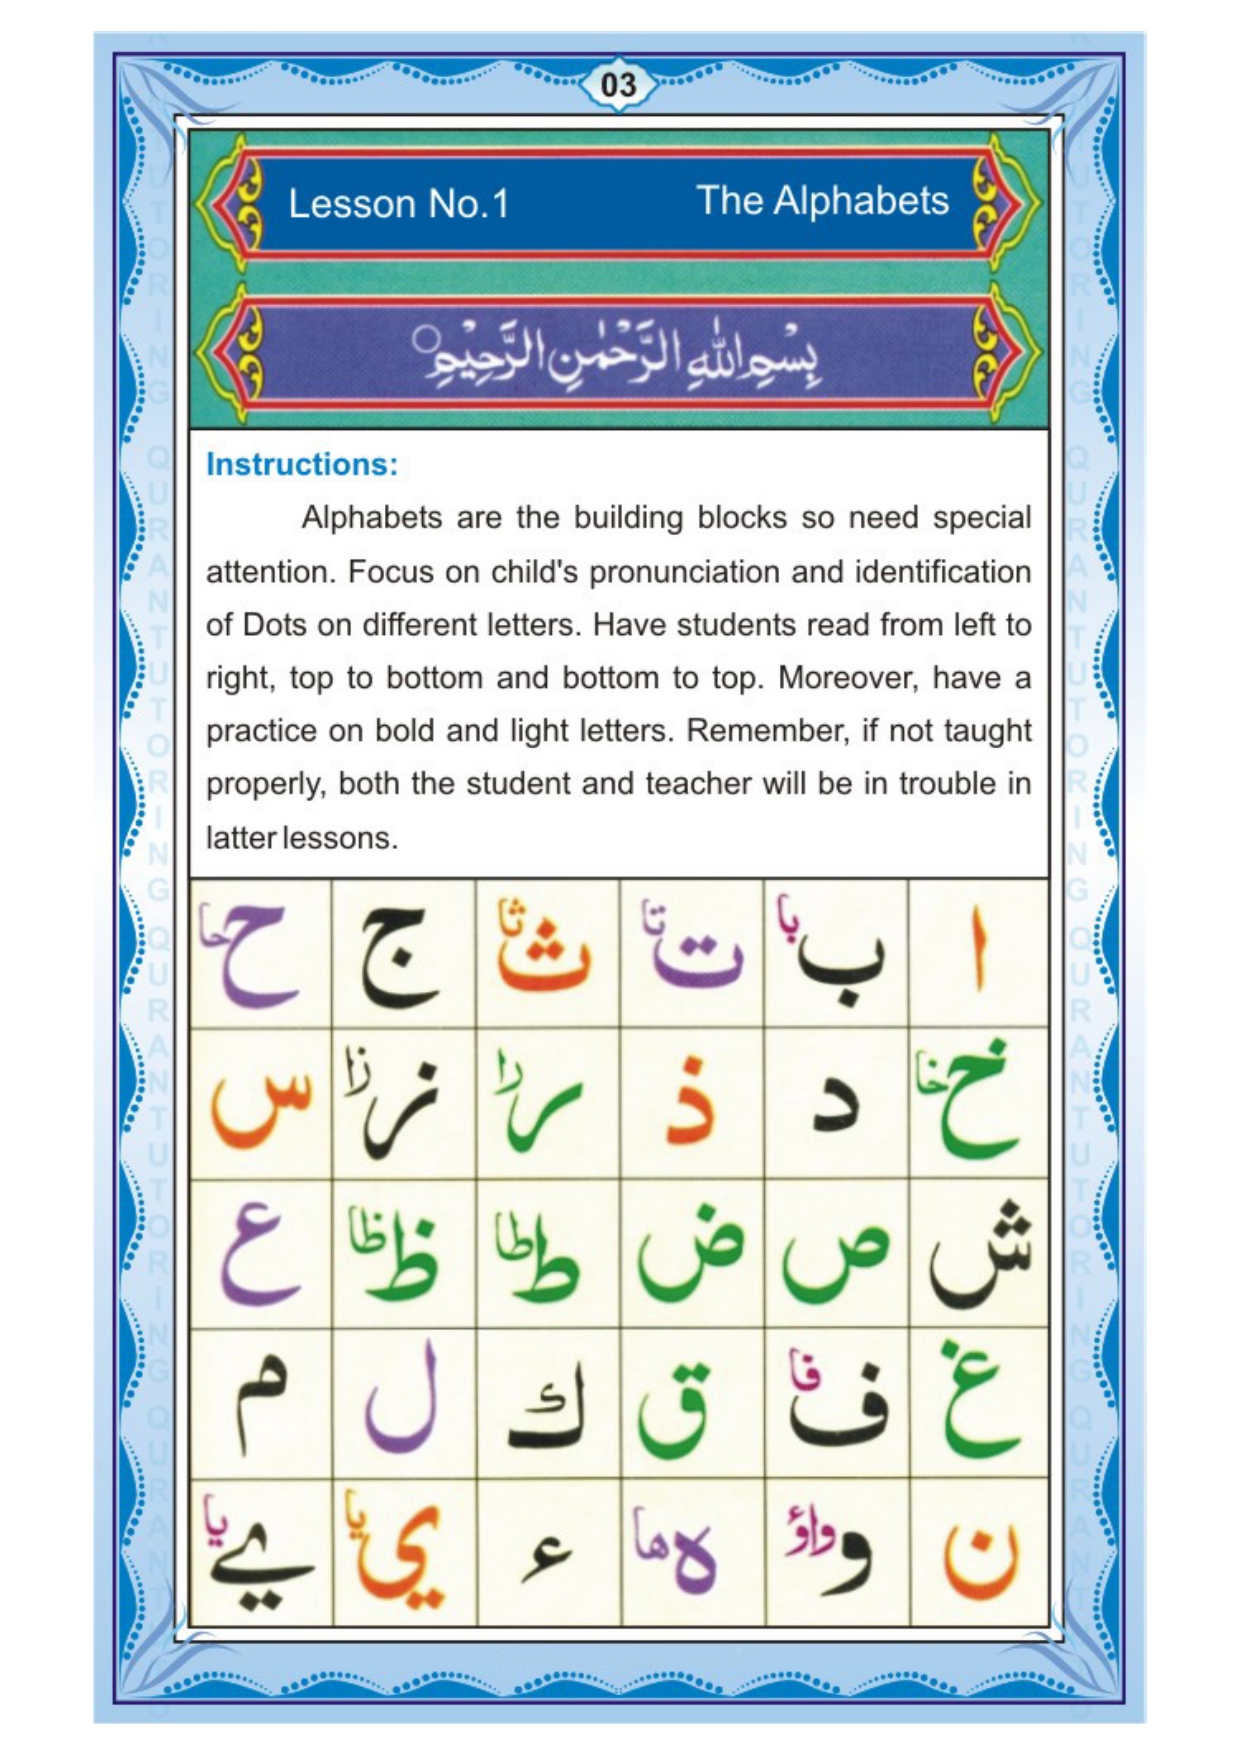 03
Lesson No.1 The Alphabets
بِسْمِ اللّٰهِ الرَّحْمٰنِ الرَّحِيْمِ
Instructions:
Alphabets are the building blocks so need special
attention. Focus on child's pronunciation and identification
of Dots on different letters. Have students read from left to
right, top to bottom and bottom to top. Moreover, have a
practice on bold and light letters. Remember, if not taught
properly, both the student and teacher will be in trouble in
latter lessons.
ا ب با ت تا ث ثا ج ح حا
خ خا د ذ ر را ز زا س
ش ص ض ط طا ظ ظا ع
غ ف فا ق ك ل م
ن و واؤ ه ها ء ي يا ے يا
QURAN TUTORING QURAN TUTORING QURAN TUTORING
QURAN TUTORING QURAN TUTORING QURAN TUTORING